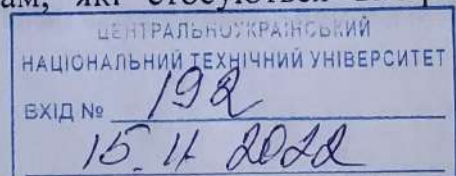 ам, які стосуються
ЦЕНТРАЛЬНОУКРАЇНСЬКИЙ
НАЦІОНАЛЬНИЙ ТЕХНІЧНИЙ УНІВЕРСИТЕТ
ВХІД № 192
15. 11 2022